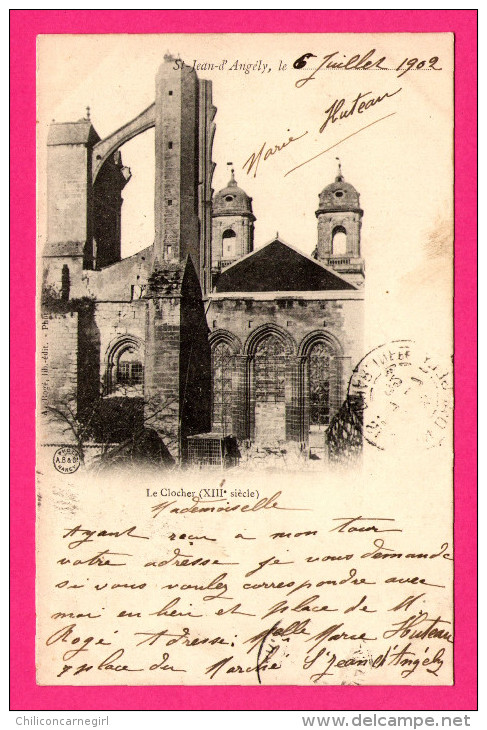 St-Jean-d'Angély, le 6 Juillet 1902
Marie Huteau
A. Rogé, lib.-édit. - Phot.
A.B & Cie
NANCY
Le Clocher (XIIIe siècle)
Mademoiselle
Ayant reçu a mon tour
votre adresse je vous demande
si vous voulez correspondre avec
moi en lieu et place de M.
Rogé Adresse: Melle Marie Huteau
7 place du Marché St Jean d'Angély
Chiliconcarnegirl
http://www.delcampe.net